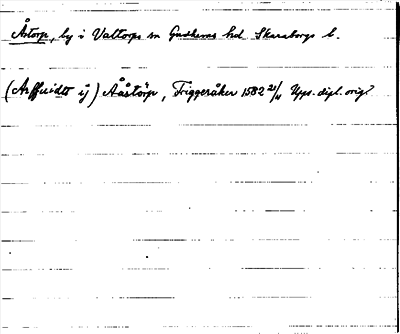 Åstorp, by i Valtorps sn Gudhems hd Skaraborgs l.
(Arffuidtt ij) Aåstörp, Friggeråker 1582 21/11 Upps. dipl. orig.